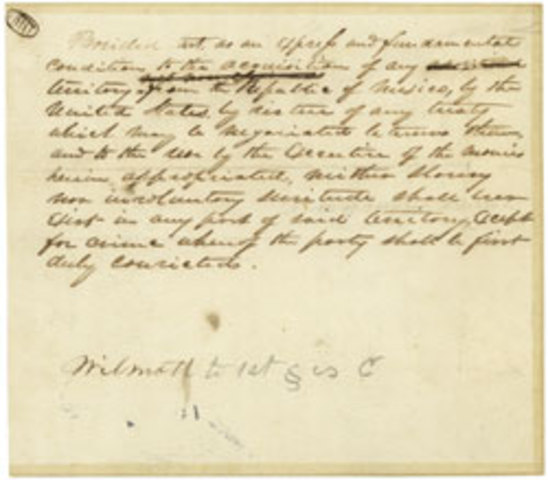 Provided that, as an express and fundamental
condition to the acquisition of any
territory from the Republic of Mexico, by the
United States, by virtue of any treaty
which may be negotiated between them,
and to the use by the Executive of the moneys
herein appropriated, neither slavery
nor involuntary servitude shall ever
exist in any part of said territory, except
for crime whereof the party shall be first
duly convicted.
Wilmott to 1st § C